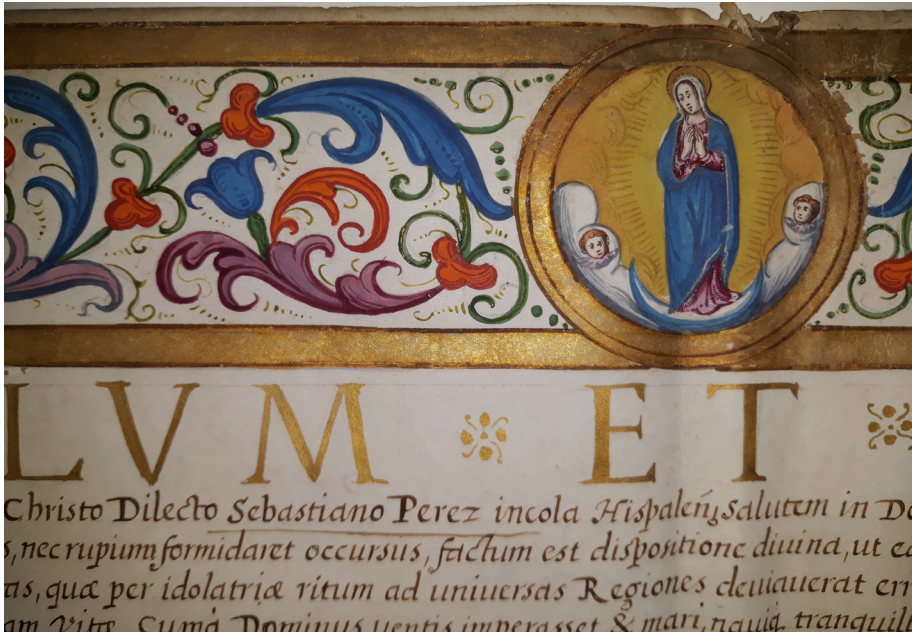 LVM ET
Christo Dilecto Sebastiano Perez incola Hispaleñ, Salutem in Do
s, nec rupium formidaret occursus, factum est dispositione diuina, ut ea
as, quæ per idolatriæ ritum ad uniuersas Regiones deuiauerat err
am vitæ. Cumq̃ Dominus uentis imperasset & mari, nauis tranquill